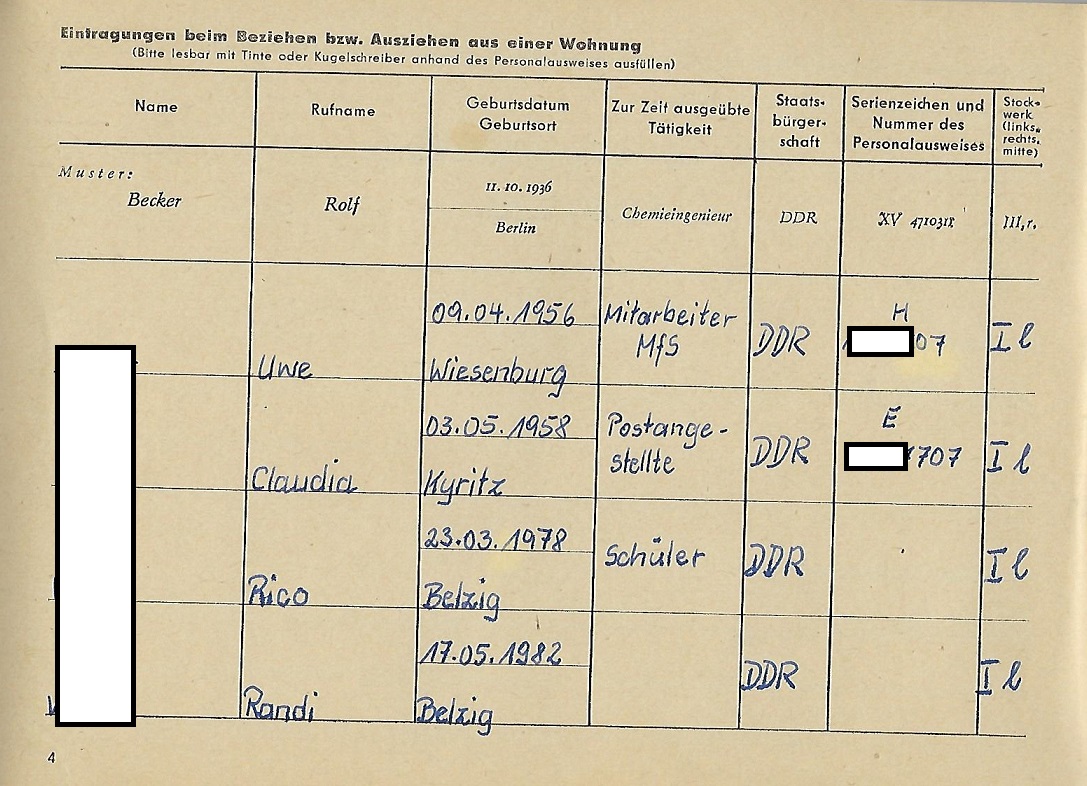 Eintragungen beim Beziehen bzw. Ausziehen aus einer Wohnung
(Bitte lesbar mit Tinte oder Kugelschreiber anhand des Personalausweises ausfüllen)
Name
Rufname
Geburtsdatum
Geburtsort
Zur Zeit ausgeübte
Tätigkeit
Staats-
bürger-
schaft
Serienzeichen und
Nummer des
Personalausweises
Stock-
werk
(links,
rechts,
mitte)
Muster:
Becker
Rolf
11. 10. 1936
Berlin
Chemieingenieur
DDR
XV 4710311
III, r.
Uwe
09.04.1956
Wiesenburg
Mitarbeiter
MfS
DDR
H
07
I l
Claudia
03.05.1958
Kyritz
Postange-
stellte
DDR
E
707
I l
Rico
23.03.1978
Belzig
Schüler
DDR
I l
Randi
17.05.1982
Belzig
DDR
I l
4